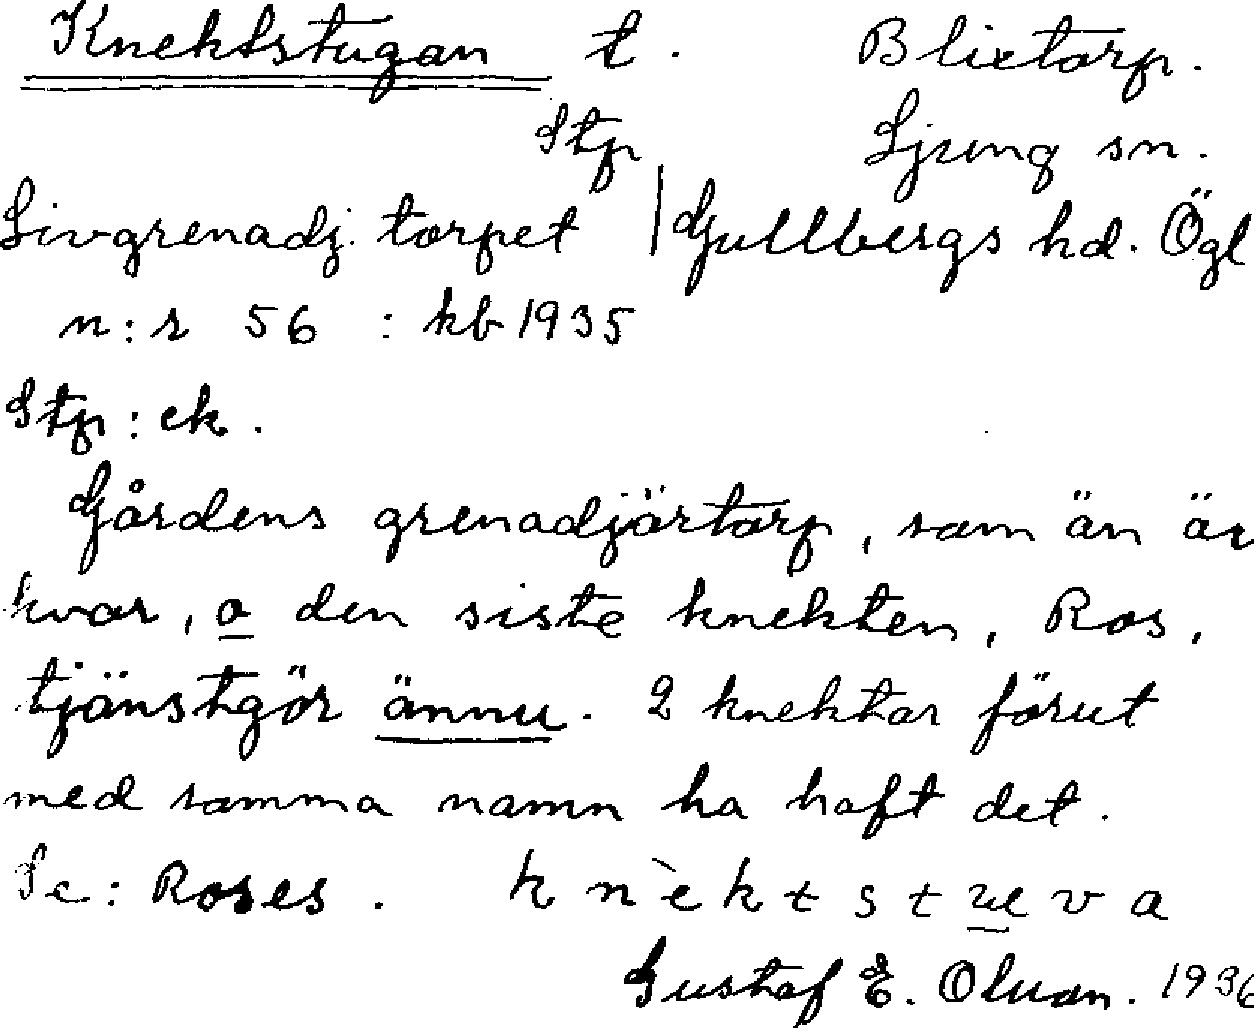 Knektstugan t. Blixtorp.
Stp Ljung sn.
Livgrenadj. torpet | Gullbergs hd. Ögl
n:r 56 : kb 1935
Stp : ek.
Gårdens grenadjärtorp, som än är
kvar, o den siste knekten, Ros,
tjänstgör ännu. 2 knektar förut
med samma namn ha haft det.
Se : Roses. knèktstueva
Gustaf E. 1936